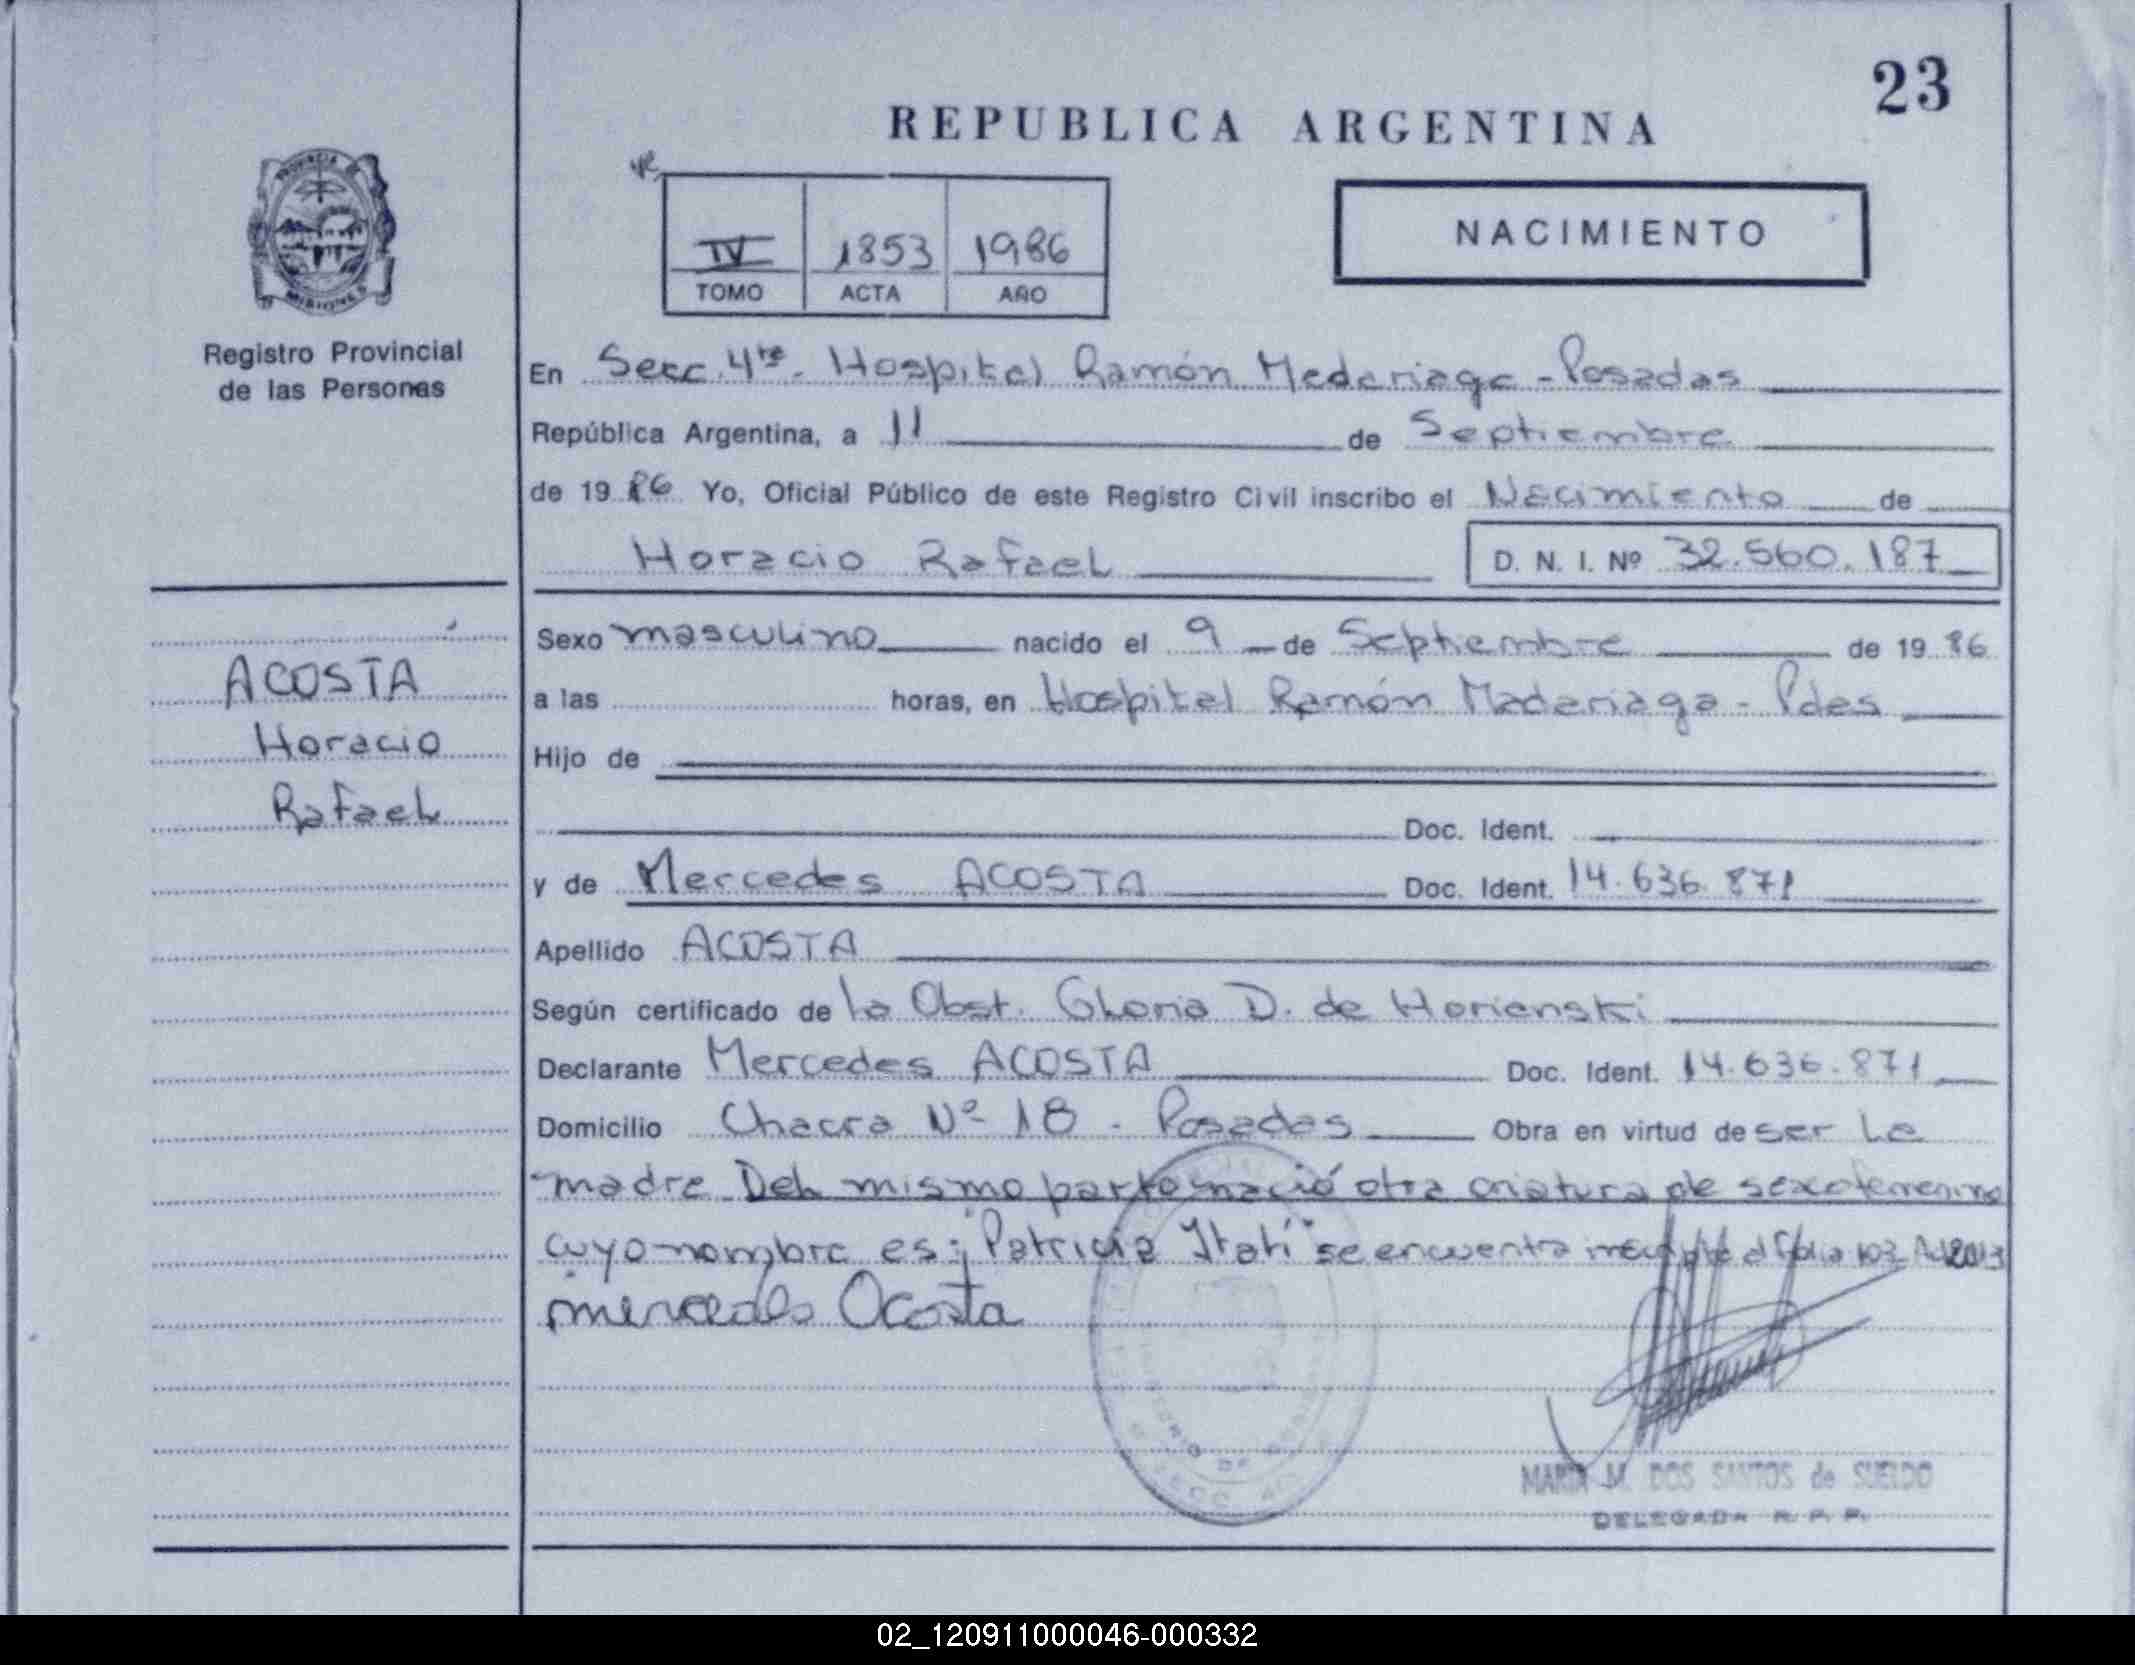 23
REPUBLICA ARGENTINA
NACIMIENTO
IV 1853 1986
TOMO ACTA AÑO
PROVINCIA DE MISIONES
Registro Provincial
de las Personas
ACOSTA
Horacio
Rafael
En Secc. 4ta. Hospital Ramón Madariaga - Posadas
República Argentina, a 11 de Septiembre
de 1986 Yo, Oficial Público de este Registro Civil inscribo el Nacimiento de
Horacio Rafael D. N. I. Nº 32.560.187
Sexo masculino nacido el 9 de Septiembre de 1986
a las horas, en Hospital Ramón Madariaga - Pdas
Hijo de
Doc. Ident.
y de Mercedes ACOSTA Doc. Ident. 14.636.871
Apellido ACOSTA
Según certificado de la Obst. Gloria D. de Horianski
Declarante Mercedes ACOSTA Doc. Ident. 14.636.871
Domicilio Chacra Nº 18 - Posadas Obra en virtud de ser la
madre Del mismo parto nació otra criatura de sexo femenino
cuyo nombre es: "Patricia Itatí" se encuentra al folio 103
mercedes Acosta
MARIA M. DOS SANTOS de SUELDO
DELEGADA R. P. P.
02_120911000046-000332